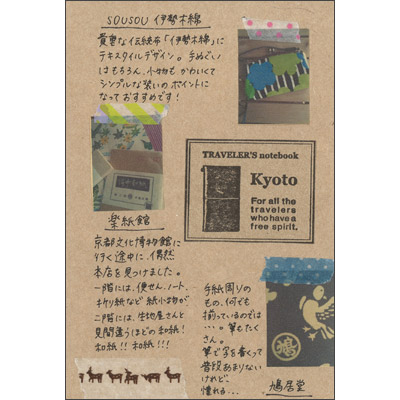 SOUSOU 伊勢木綿
貴重な伝統布「伊勢木綿」に
テキスタイルデザイン。手ぬぐい
はもちろん、小物も かわいくて
シンプルな装いの ポイントに
なって おすすめです!
TRAVELER'S notebook
Kyoto
For all the
travelers
who have a
free spirit.
楽紙館
京都文化博物館に
行く途中に、偶然
本店を見つけました。
一階には、便せん、ノート、
千代紙など 紙小物が
二階には、生地屋さんと
見間違うほどの和紙!
和紙!! 和紙!!!
手紙周りの
もの、何でも
揃っているの
では…。筆もたく
さん。
筆で字を書くって
普段あまりない
けれど、
憧れる…
鳩居堂